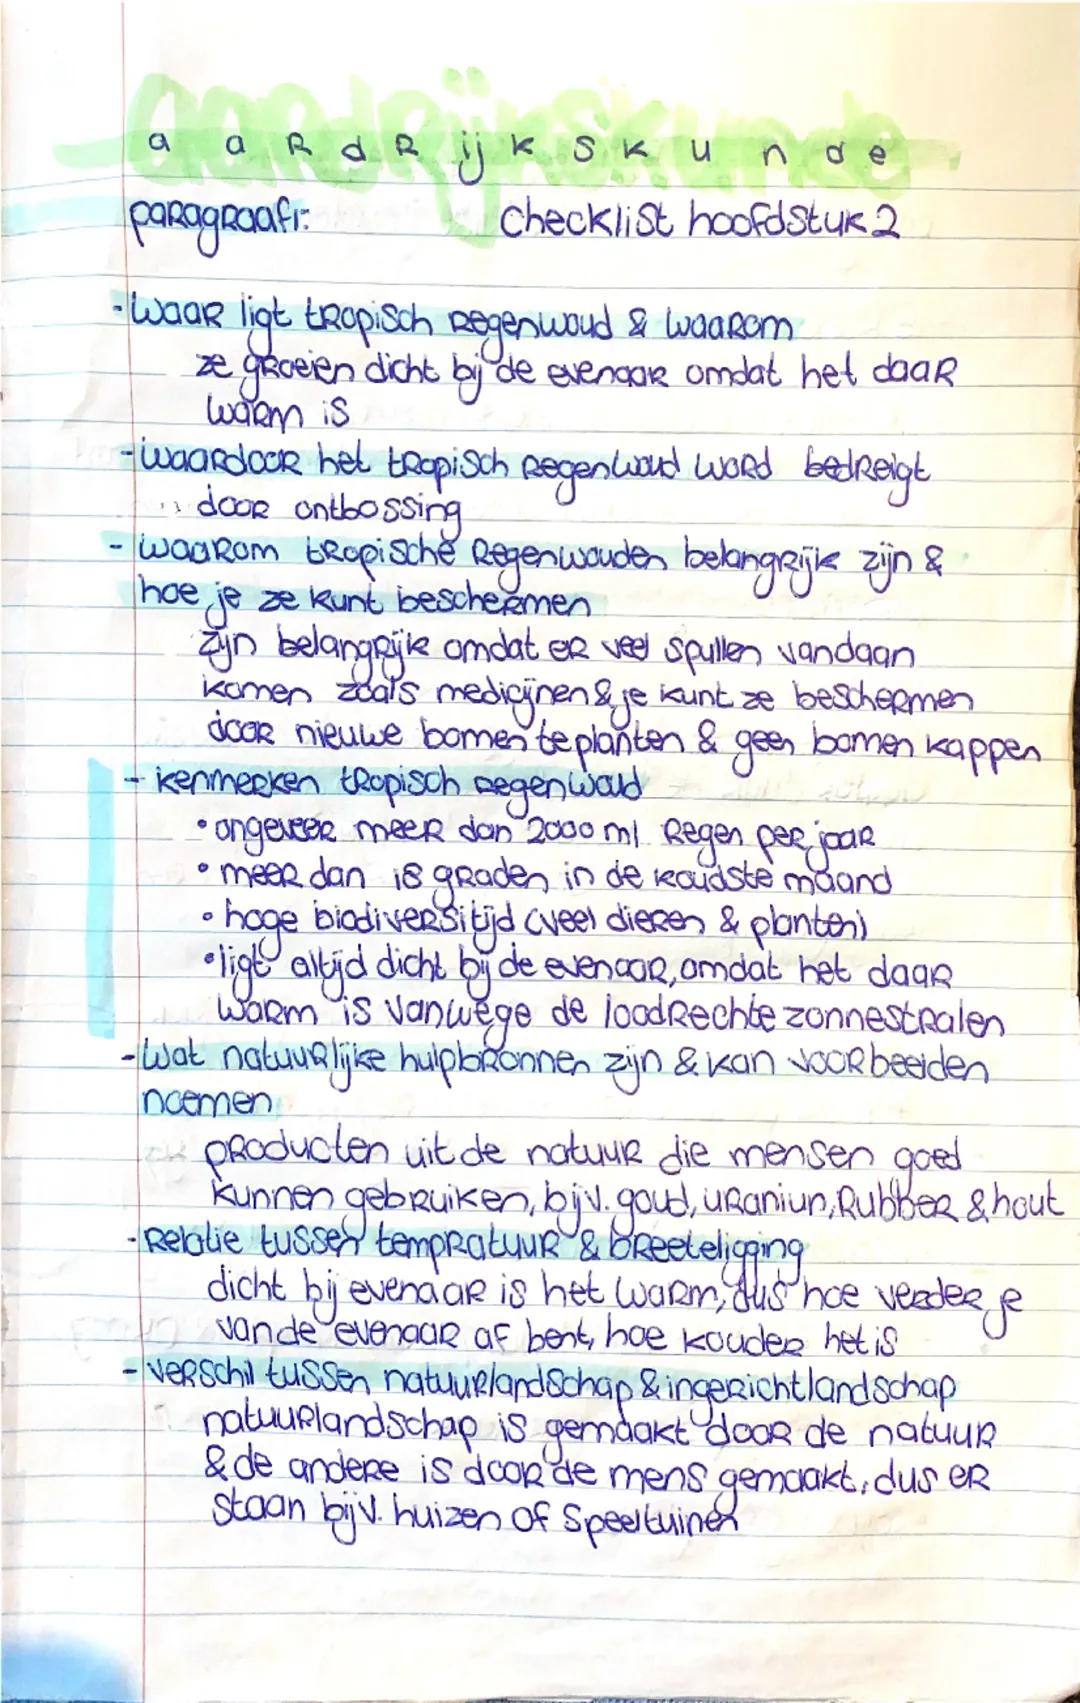 aardRijkskunde
aaRdRijkskunde
paRagRaaf1: checklist hoofdstuk 2
- waaR ligt tRopisch Regenwoud & waaRom
ze gRoeien dicht bij de evenaaR omdat het daaR
waRm is
- waardooR het tRopisch Regenwoud woRd bedReigt
dooR ontbossing
- waaRom tRopische Regenwouden belangRijk zijn &
hoe je ze kunt bescheRmen
zijn belangRijk omdat eR veel spullen vandaan
komen zoals medicijnen & je kunt ze bescheRmen
dooR nieuwe bomen te planten & geen bomen kappen
- kenmeRken tRopisch Regenwoud
• ongeveeR meeR dan 2000 ml Regen peR jaaR
• meeR dan 18 gRaden in de koudste maand
• hoge biodiveRsitijd (veel dieRen & planten)
• ligt altijd dicht bij de evenaaR, omdat het daaR
waRm is vanwege de loodRechte zonnestRalen
- wat natuuRlijke hulpbRonnen zijn & kan vooRbeelden
noemen
pRoducten uit de natuuR die mensen goed
kunnen gebRuiken, bijv. goud, uRaniun, RubbeR & hout
- Relatie tussen tempRatuuR & bReeteligging
dicht bij evenaaR is het waRm, dus hoe veRdeR je
van de evenaaR af bent, hoe koudeR het is
- veRschil tussen natuuRlandschap & ingeRicht landschap
natuuRlandschap is gemaakt dooR de natuuR
& de andeRe is dooR de mens gemaakt, dus eR
staan bijv. huizen of speeltuinen